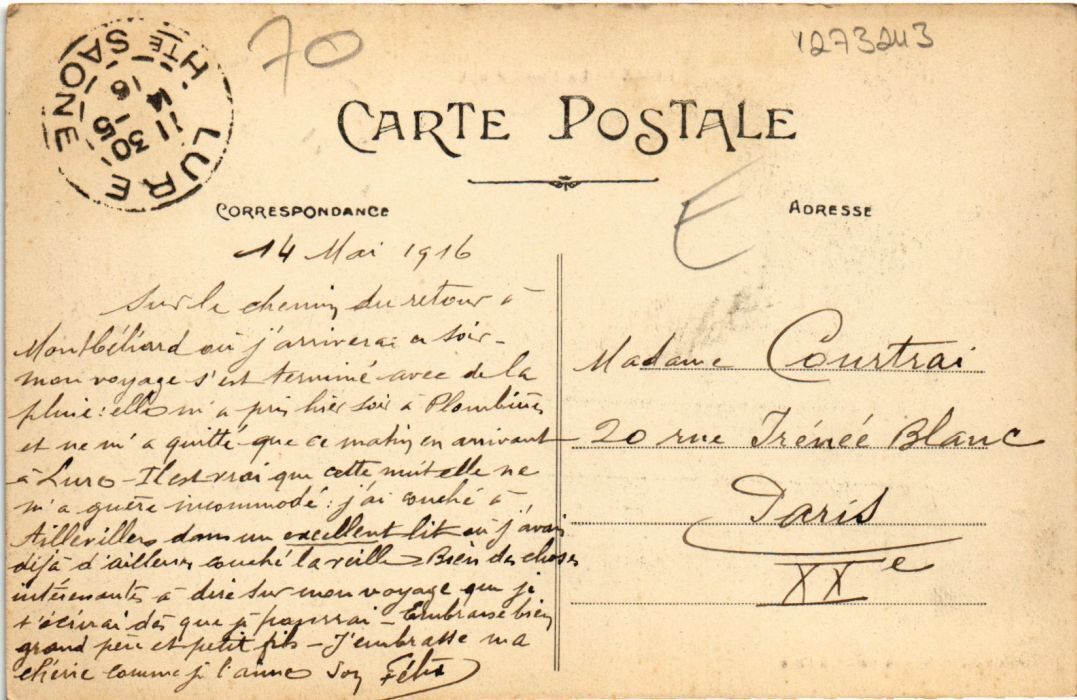 LURE
Hte SAONE
11 30
14 - 5
16
70
1273243
CARTE POSTALE
CORRESPONDANCE
ADRESSE
E
14 Mai 1916
Sur le chemin du retour à
Montbéliard où j'arriverai ce soir -
mon voyage s'est terminé avec de la
pluie : elle m'a pris hier soir à Plombières
et ne m'a quitté que ce matin en arrivant
à Lure - Il est vrai que cette nuit elle ne
m'a guère incommodé : j'ai couché à
Aillevillers dans un excellent lit où j'avais
déjà d'ailleurs couché la veille - Bien des choses
intéressantes à dire sur mon voyage que je
t'écrirai dès que je pourrai - Embrasse bien
grand père et petit fils - J'embrasse ma
chérie comme je l'aime Son Félix
Madame Courtrai
20 rue Irénée Blanc
Paris
XXe